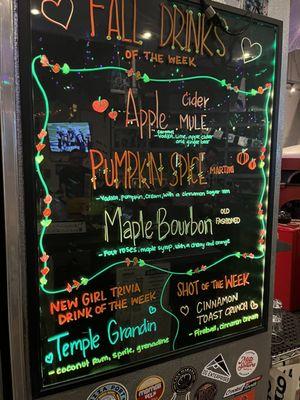 FALL DRINKS
OF THE WEEK
Apple Cider
MULE
caramel
-vodka, lime, apple cider
and ginger beer
PUMPKIN SPICE MARTINI
-Vodka, pumpkin, cream, with a cinnamon sugar rim
Maple Bourbon OLD
FASHIONED
- Four roses, maple syrup, with a cherry and orange
NEW GIRL TRIVIA
DRINK OF THE WEEK
Temple Grandin
- coconut rum, sprite, grenadine
SHOT OF THE WEEK
CINNAMON
TOAST CRUNCH
- Fireball, cinnamon cream